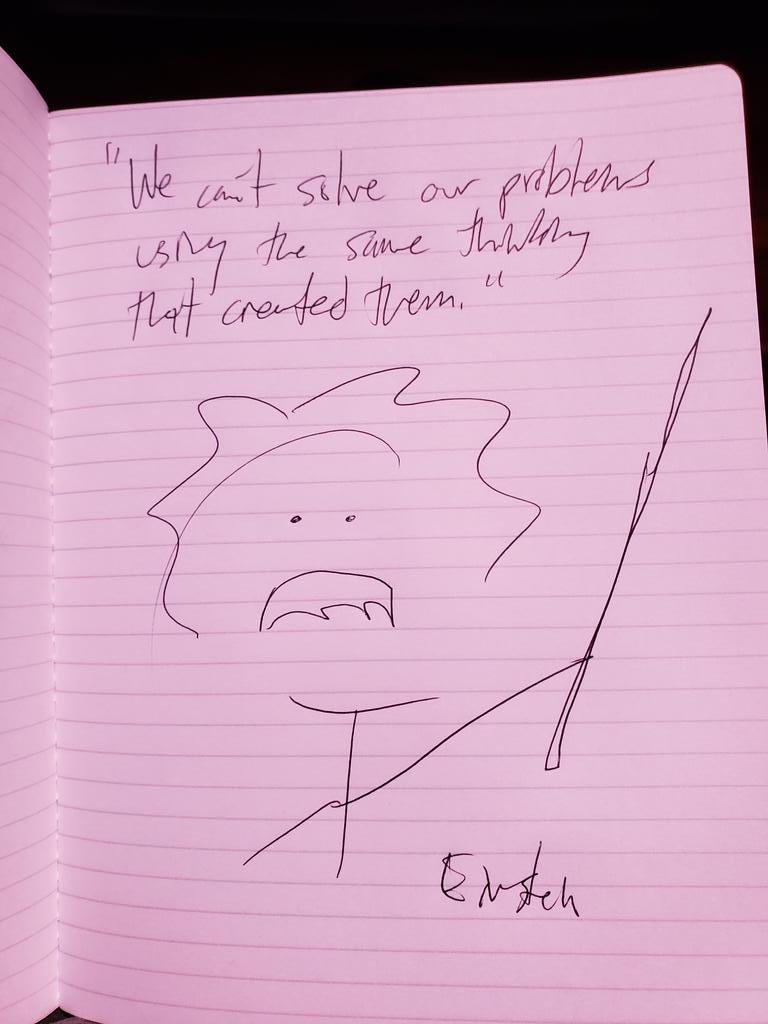 "We can't solve our problems
using the same thinking
that created them."
Einstein